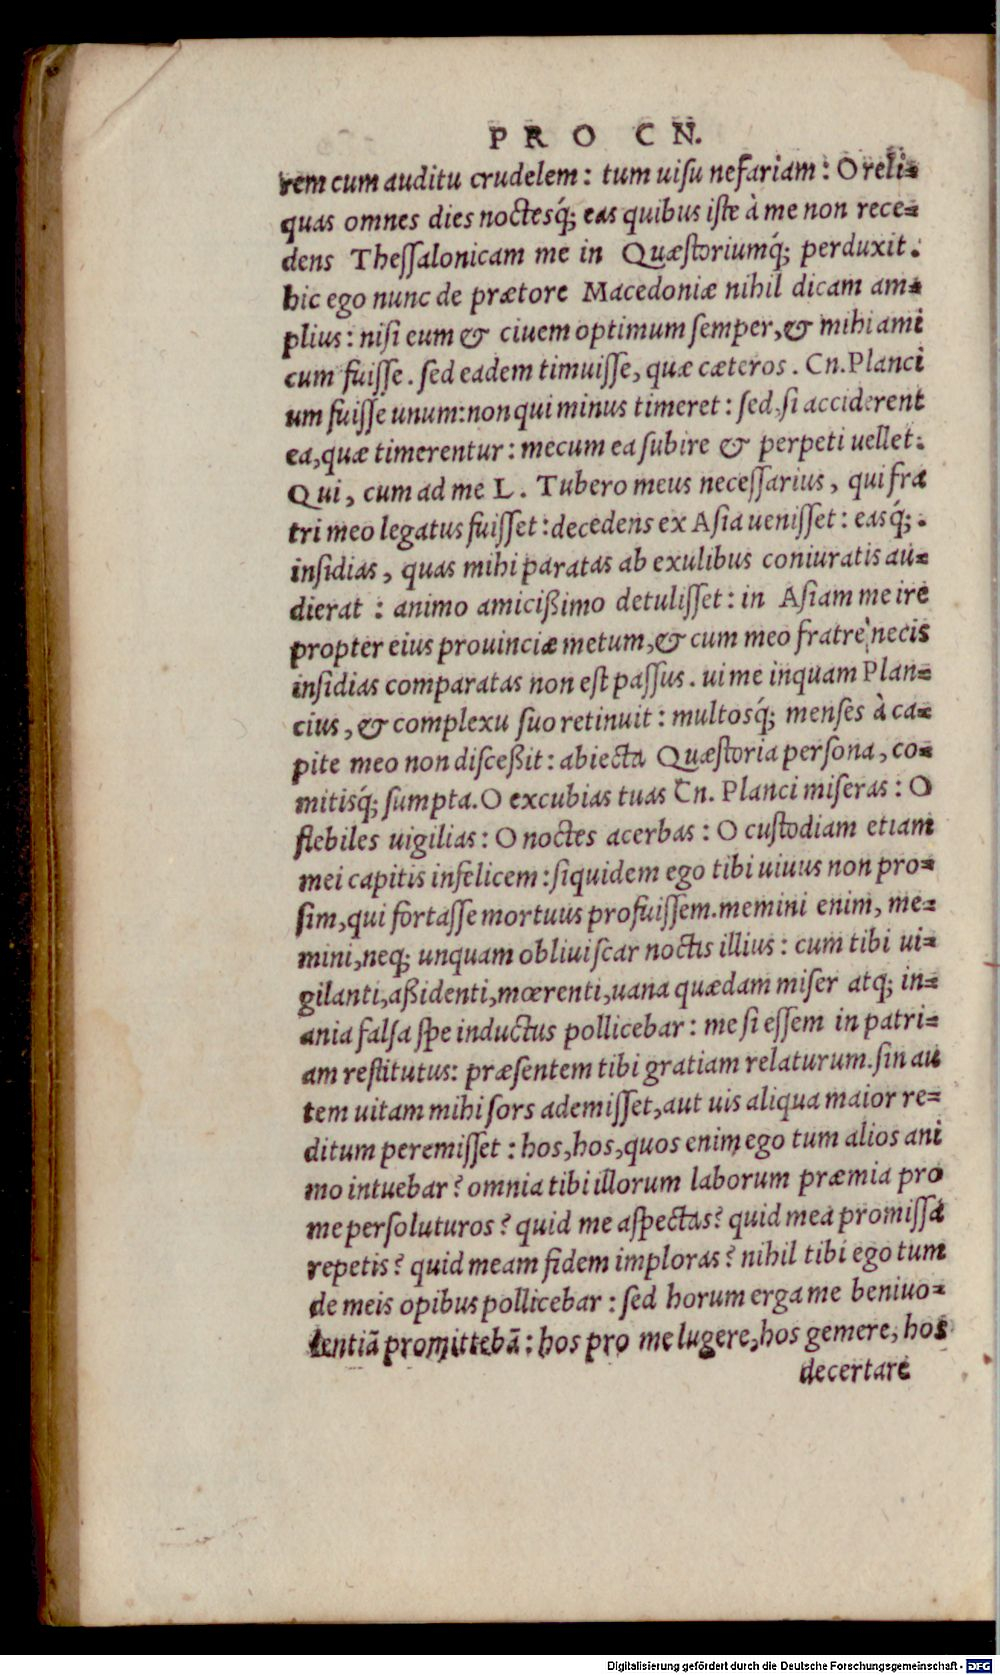 PRO CN.
rem cum auditu crudelem: tum uiſu nefariam: O reli=
quas omnes dies noctesq́; eas quibus iſte à me non rece=
dens Theſſalonicam me in Quæſtoriumq́; perduxit.
hic ego nunc de prætore Macedoniæ nihil dicam am=
plius: niſi eum & ciuem optimum ſemper, & mihi ami
cum fuiſſe. ſed eadem timuiſſe, quæ cæteros. Cn. Planci
um fuiſſe unum: non qui minus timeret: ſed, ſi acciderent
ea, quæ timerentur: mecum ea ſubire & perpeti uellet.
Qui, cum ad me L. Tubero meus neceſſarius, qui fra
tri meo legatus fuiſſet: decedens ex Aſia ueniſſet: easq́;.
inſidias, quas mihi paratas ab exulibus coniuratis au=
dierat: animo amicißimo detuliſſet: in Aſiam me ire
propter eius prouinciæ metum, & cum meo fratre necis
inſidias comparatas non eſt paſſus. ui me inquam Plan=
cius, & complexu ſuo retinuit: multosq́; menſes à ca=
pite meo non diſceßit: abiecta Quæſtoria perſona, co=
mitisq́; ſumpta. O excubias tuas Cn. Planci miſeras: O
flebiles uigilias: O noctes acerbas: O cuſtodiam etiam
mei capitis infelicem: ſiquidem ego tibi uiuus non pro=
ſim, qui fortaſſe mortuus profuiſſem. memini enim, me=
mini, neq; unquam obliuiſcar noctis illius: cum tibi ui=
gilanti, aßidenti, mœrenti, uana quædam miſer atq; in=
ania falſa ſpe inductus pollicebar: me ſi eſſem in patri=
am reſtitutus: præſentem tibi gratiam relaturum. ſin au
tem uitam mihi ſors ademiſſet, aut uis aliqua maior re=
ditum peremiſſet: hos, hos, quos enim ego tum alios ani
mo intuebar? omnia tibi illorum laborum præmia pro
me perſoluturos? quid me aſpectas? quid mea promiſſa
repetis? quid meam fidem imploras? nihil tibi ego tum
de meis opibus pollicebar: ſed horum erga me beniuo=
lentiā promittebā: hos pro me lugere, hos gemere, hos
decertare
Digitalisierung gefördert durch die Deutsche Forschungsgemeinschaft - DFG